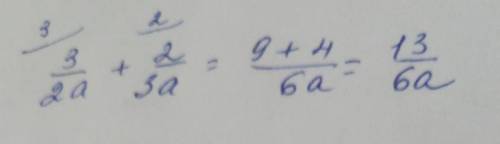 3 2
3/2a + 2/3a = 9 + 4/6a = 13/6a